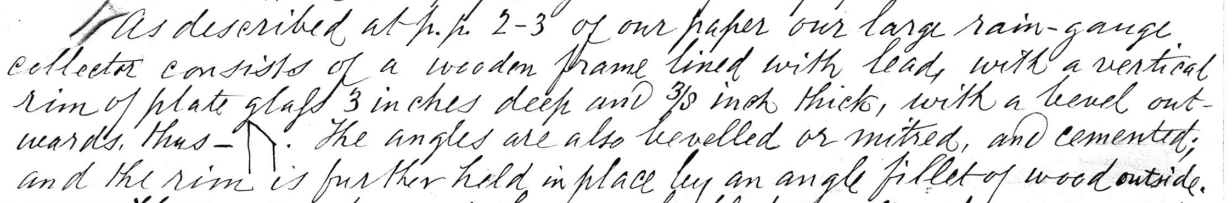 As described at p.p. 2-3 of our paper our large rain-gauge
collector consists of a wooden frame lined with lead, with a vertical
rim of plate glass 3 inches deep and 3/8 inch thick, with a bevel out-
wards, thus - . The angles are also bevelled or mitred, and cemented;
and the rim is further held in place by an angle fillet of wood outside.